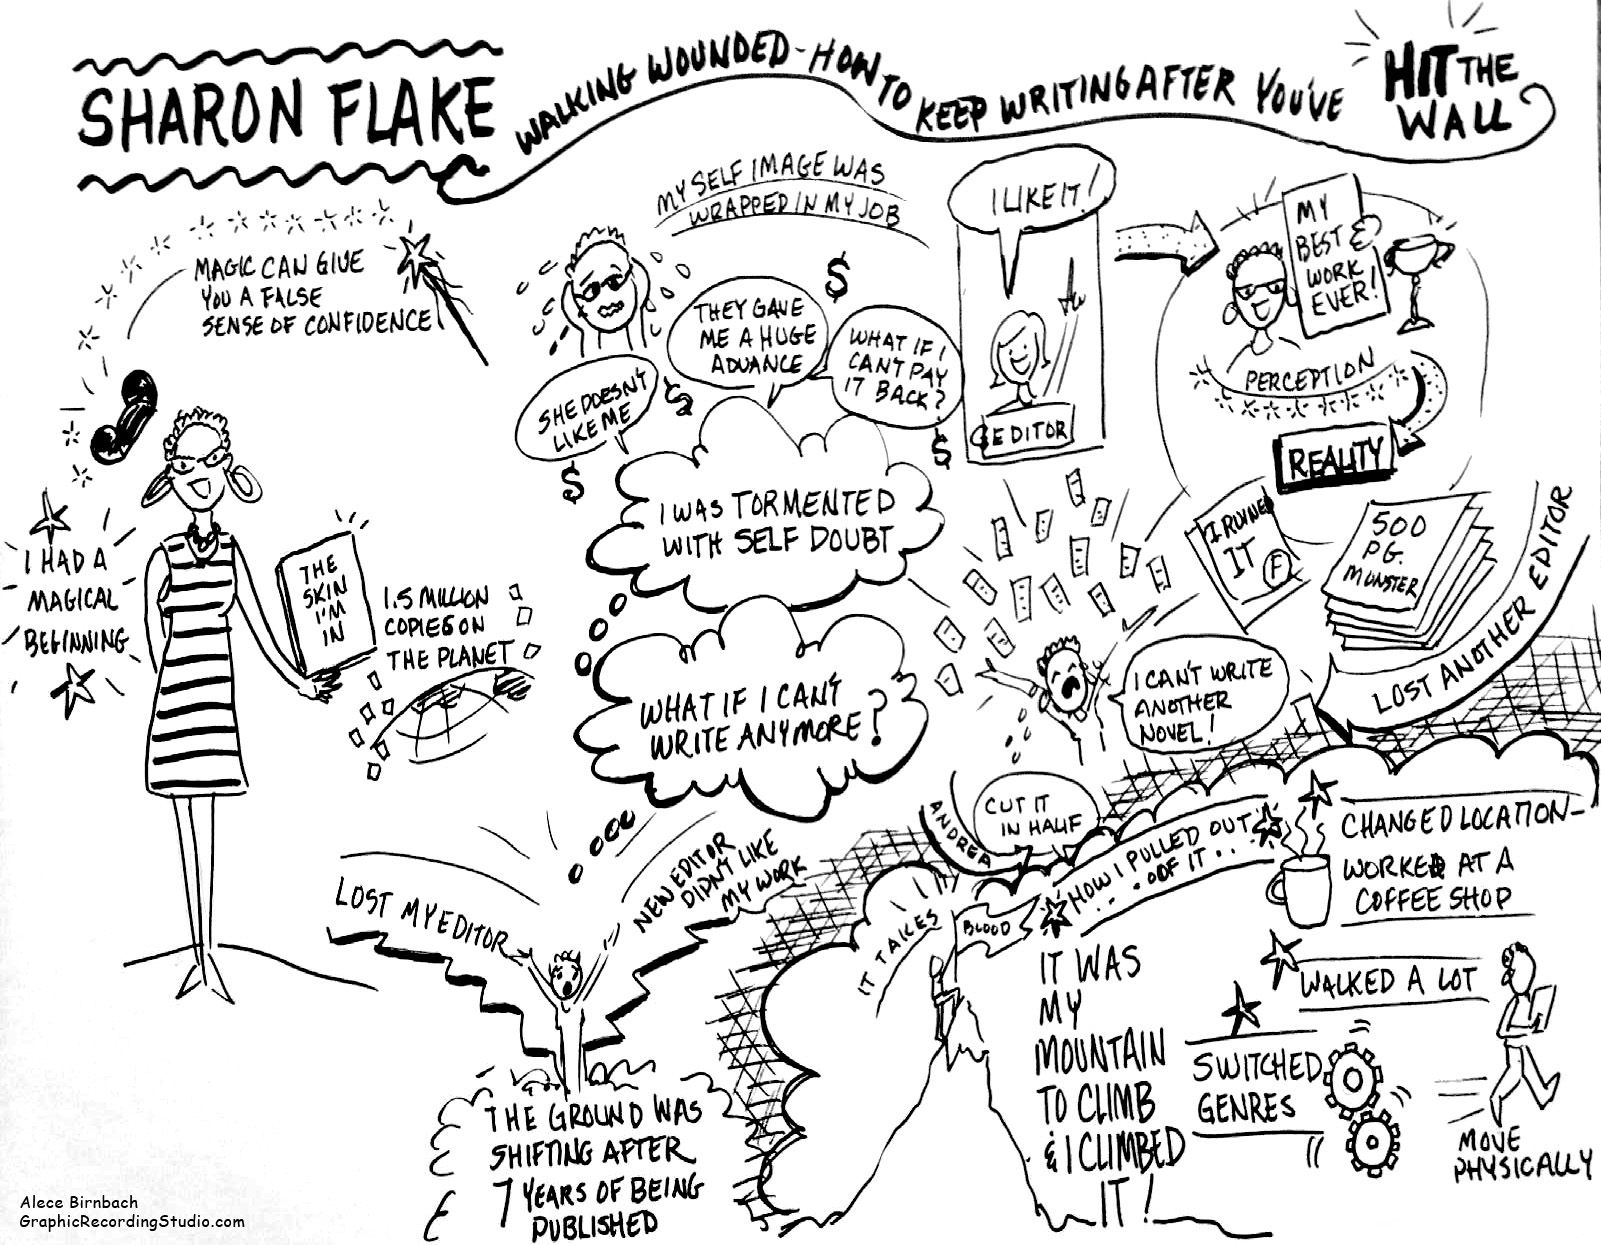 SHARON FLAKE
WALKING WOUNDED - HOW TO KEEP WRITING AFTER YOU'VE
HIT THE
WALL
MAGIC CAN GIVE
YOU A FALSE
SENSE OF CONFIDENCE
I HAD A
MAGICAL
BEGINNING
THE
SKIN
I'M
IN
1.5 MILLION
COPIES ON
THE PLANET
MY SELF IMAGE WAS
WRAPPED IN MY JOB
SHE DOESN'T
LIKE ME
THEY GAVE
ME A HUGE
ADVANCE
WHAT IF I
CAN'T PAY
IT BACK?
$
$
$
$
I WAS TORMENTED
WITH SELF DOUBT
WHAT IF I CAN'T
WRITE ANYMORE?
LOST MY EDITOR
NEW EDITOR
DIDN'T LIKE
MY WORK
THE GROUND WAS
SHIFTING AFTER
7 YEARS OF BEING
PUBLISHED
I LIKE IT!
EDITOR
MY
BEST
WORK
EVER!
PERCEPTION
REALITY
I RUINED
IT
F
500
PG.
MONSTER
LOST ANOTHER EDITOR
I CAN'T WRITE
ANOTHER
NOVEL!
ANDREA
CUT IT
IN HALF
HOW I PULLED OUT
OF IT...
IT TAKES
BLOOD
IT WAS
MY
MOUNTAIN
TO CLIMB
& I CLIMBED
IT!
CHANGED LOCATION -
WORKED AT A
COFFEE SHOP
WALKED A LOT
SWITCHED
GENRES
MOVE
PHYSICALLY
Alece Birnbach
GraphicRecordingStudio.com